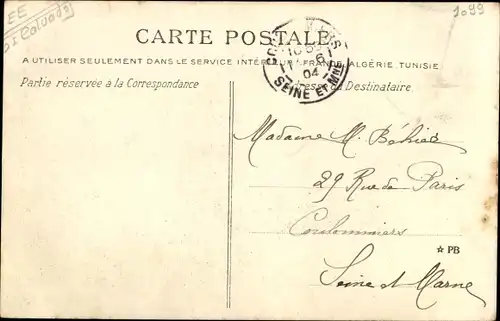 EE
1099
CARTE POSTALE
A UTILISER SEULEMENT DANS LE SERVICE INTÉRIEUR (FRANCE, ALGÉRIE, TUNISIE
Partie réservée à la Correspondance
Adresse du Destinataire.
04
SEINE ET MNE
Madame M. Béhier
29 Rue de Paris
Coulommiers
☆ PB
Seine et Marne